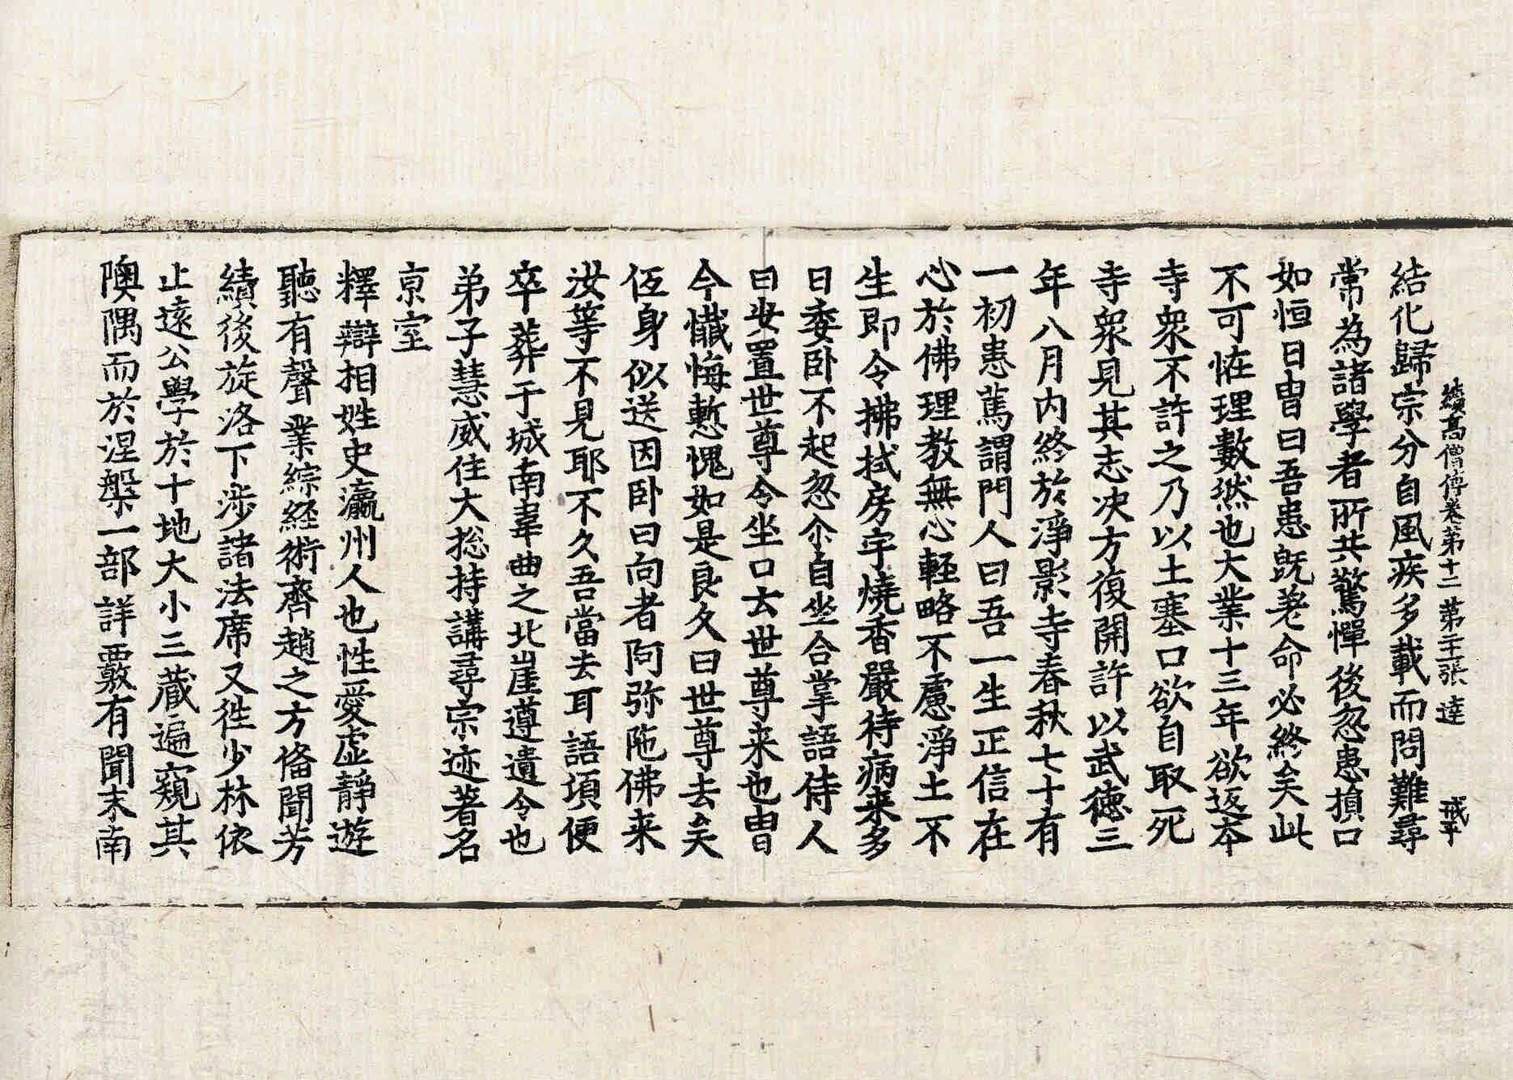 續高僧傳卷第十二 第二十張 逵 戒平
結化歸宗分自風疾多載而問難尋
常為諸學者所共驚憚後忽患損口
如恒日冑曰吾患旣差命必終矣此
不可恠理數然也大業十三年欲返本
寺衆不許之乃以土塞口欲自取死
寺衆見其志决方復開許以武德三
年八月内終於淨影寺春秋七十有
一初患篤謂門人曰吾一生正信在
心於佛理教無心輕略不慮淨土不
生即令拂拭房宇燒香嚴待病来多
日委卧不起忽尒自坐合掌語侍人
曰安置世尊令坐口云世尊来也冑
今懺悔慙愧如是良久曰世尊去矣
低身似送因卧曰向者阿弥陁佛来
汝等不見耶不久吾當去耳語頃便
卒葬于城南韋曲之北崖遵遺令也
弟子慧威住大惣持講尋宗迹著名
京室
釋辯相姓史瀛州人也性愛虛靜遊
聽有聲業綜経術齊趙之方俻聞芳
績後旋洛下涉諸法席又徃少林依
止遠公學於十地大小三藏遍窺其
隩隅而於涅槃一部詳覈有聞末南